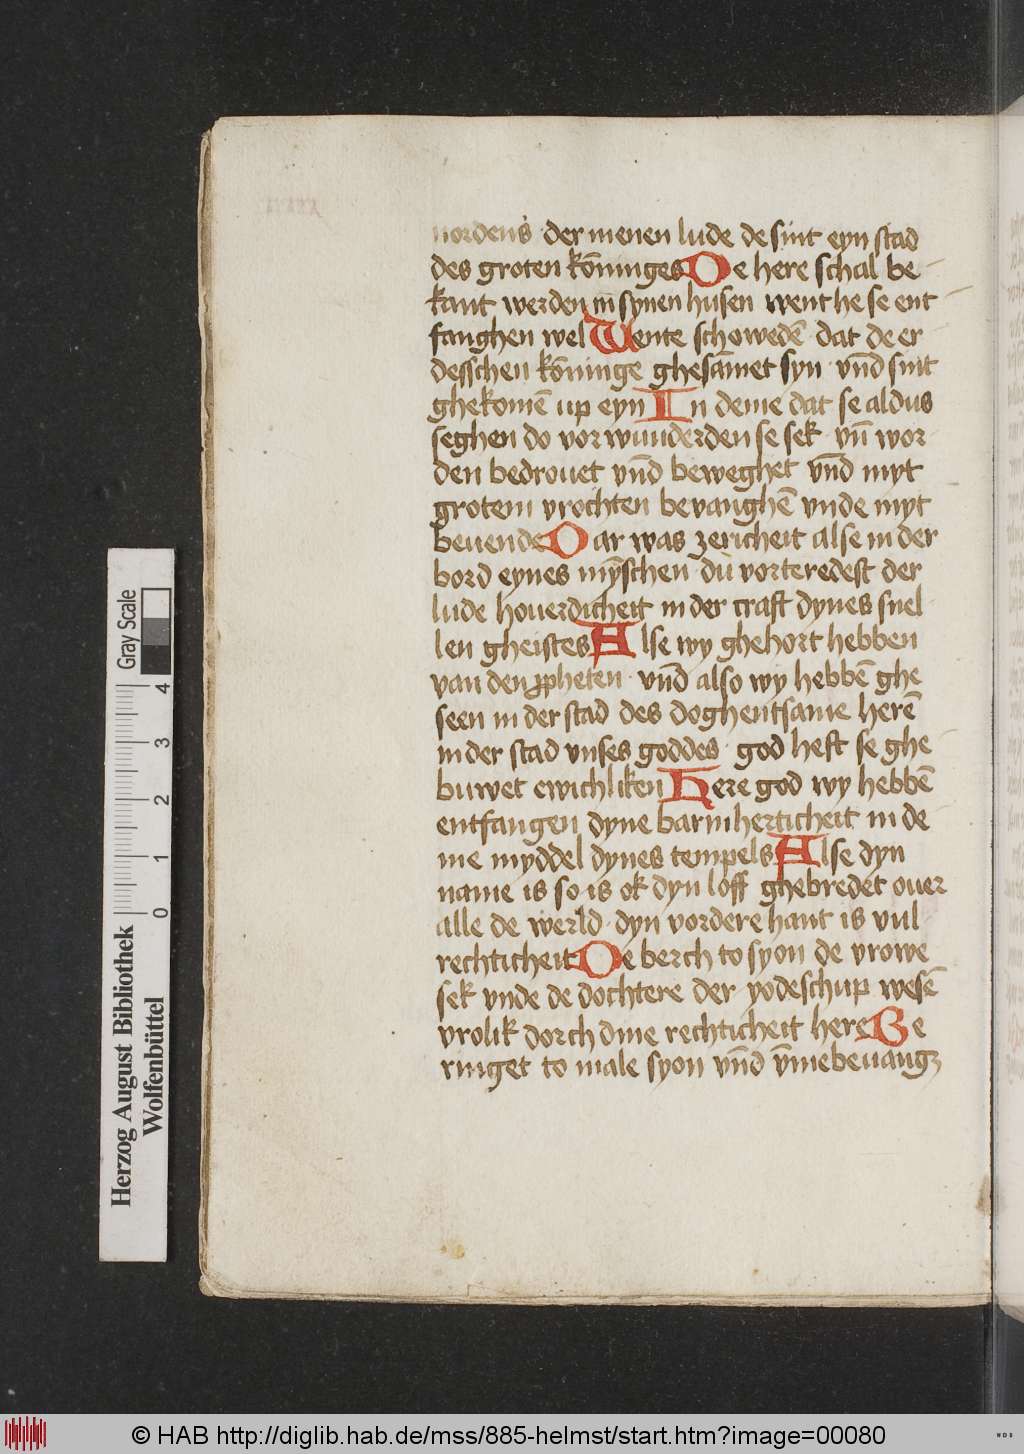 nordens der menen lude de sint eyn stad
des groten kōninges De here schal be-
kant werden in synen husen went he se ent
fanghen wel Wente schowedē dat de er
desschen kōninge ghesāmet syn vn̄d sint
ghekomē up eyn In deme dat se aldus
seghen do vor wunderden se sek vn̄ wor
den bedrouet vn̄d beweghet vn̄d myt
grotem vrochten bevanghē vnde myt
beuende Dar was zericheit alse in der
bord eynes mȳschen du vorteredest der
lude houerdicheit in der craft dynes snel
len gheistes Alse wy ghehort hebben
van den ꝓpheten vn̄d also wy hebbē ghe
seen in der stad des doghentsame herē
in der stad vnses goddes god heft se ghe
buwet ewichliken Here god wy hebbē
entfangen dyne barmherticheit in de
me myddel dynes tempels Alse dyn
name is so is ok dyn loff ghebredet ouer
alle de werld dyn vordere hant is vul
rechticheit De berch to syon de vrowe
sek vnde de dochtere der yodeschup wesē
vrolik dorch dine rechticheit here Be
ringet to male syon vn̄d v̄mebeuangꝫ
Gray Scale
0 1 2 3 4
Herzog August Bibliothek
Wolfenbüttel
© HAB http://diglib.hab.de/mss/885-helmst/start.htm?image=00080